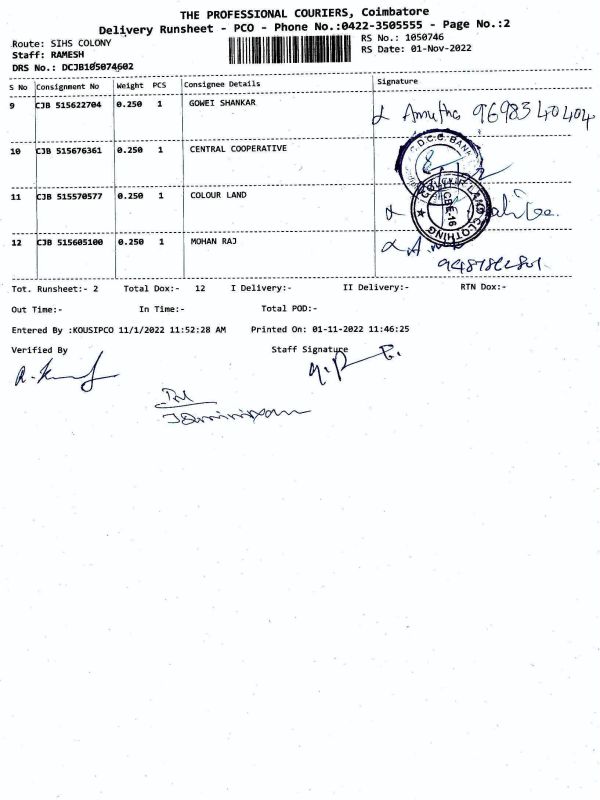 THE PROFESSIONAL COURIERS, Coimbatore
Delivery Runsheet - PCO - Phone No.:0422-3505555 - Page No.:2
Route: SIHS COLONY RS No.: 1050746
Staff: RAMESH RS Date: 01-Nov-2022
DRS No.: DCJB105074602
S No Consignment No Weight PCS Consignee Details Signature
9 CJB 515622704 0.250 1 GOWEI SHANKAR Amutha 9698340404
10 CJB 515676361 0.250 1 CENTRAL COOPERATIVE C.D.C.C. BANK
11 CJB 515570577 0.250 1 COLOUR LAND COLOUR LAND CLOTHING CBE-16
12 CJB 515605100 0.250 1 MOHAN RAJ
Tot. Runsheet:- 2 Total Dox:- 12 I Delivery:- II Delivery:- RTN Dox:-
Out Time:- In Time:- Total POD:-
Entered By :KOUSIPCO 11/1/2022 11:52:28 AM Printed On: 01-11-2022 11:46:25
Verified By Staff Signature